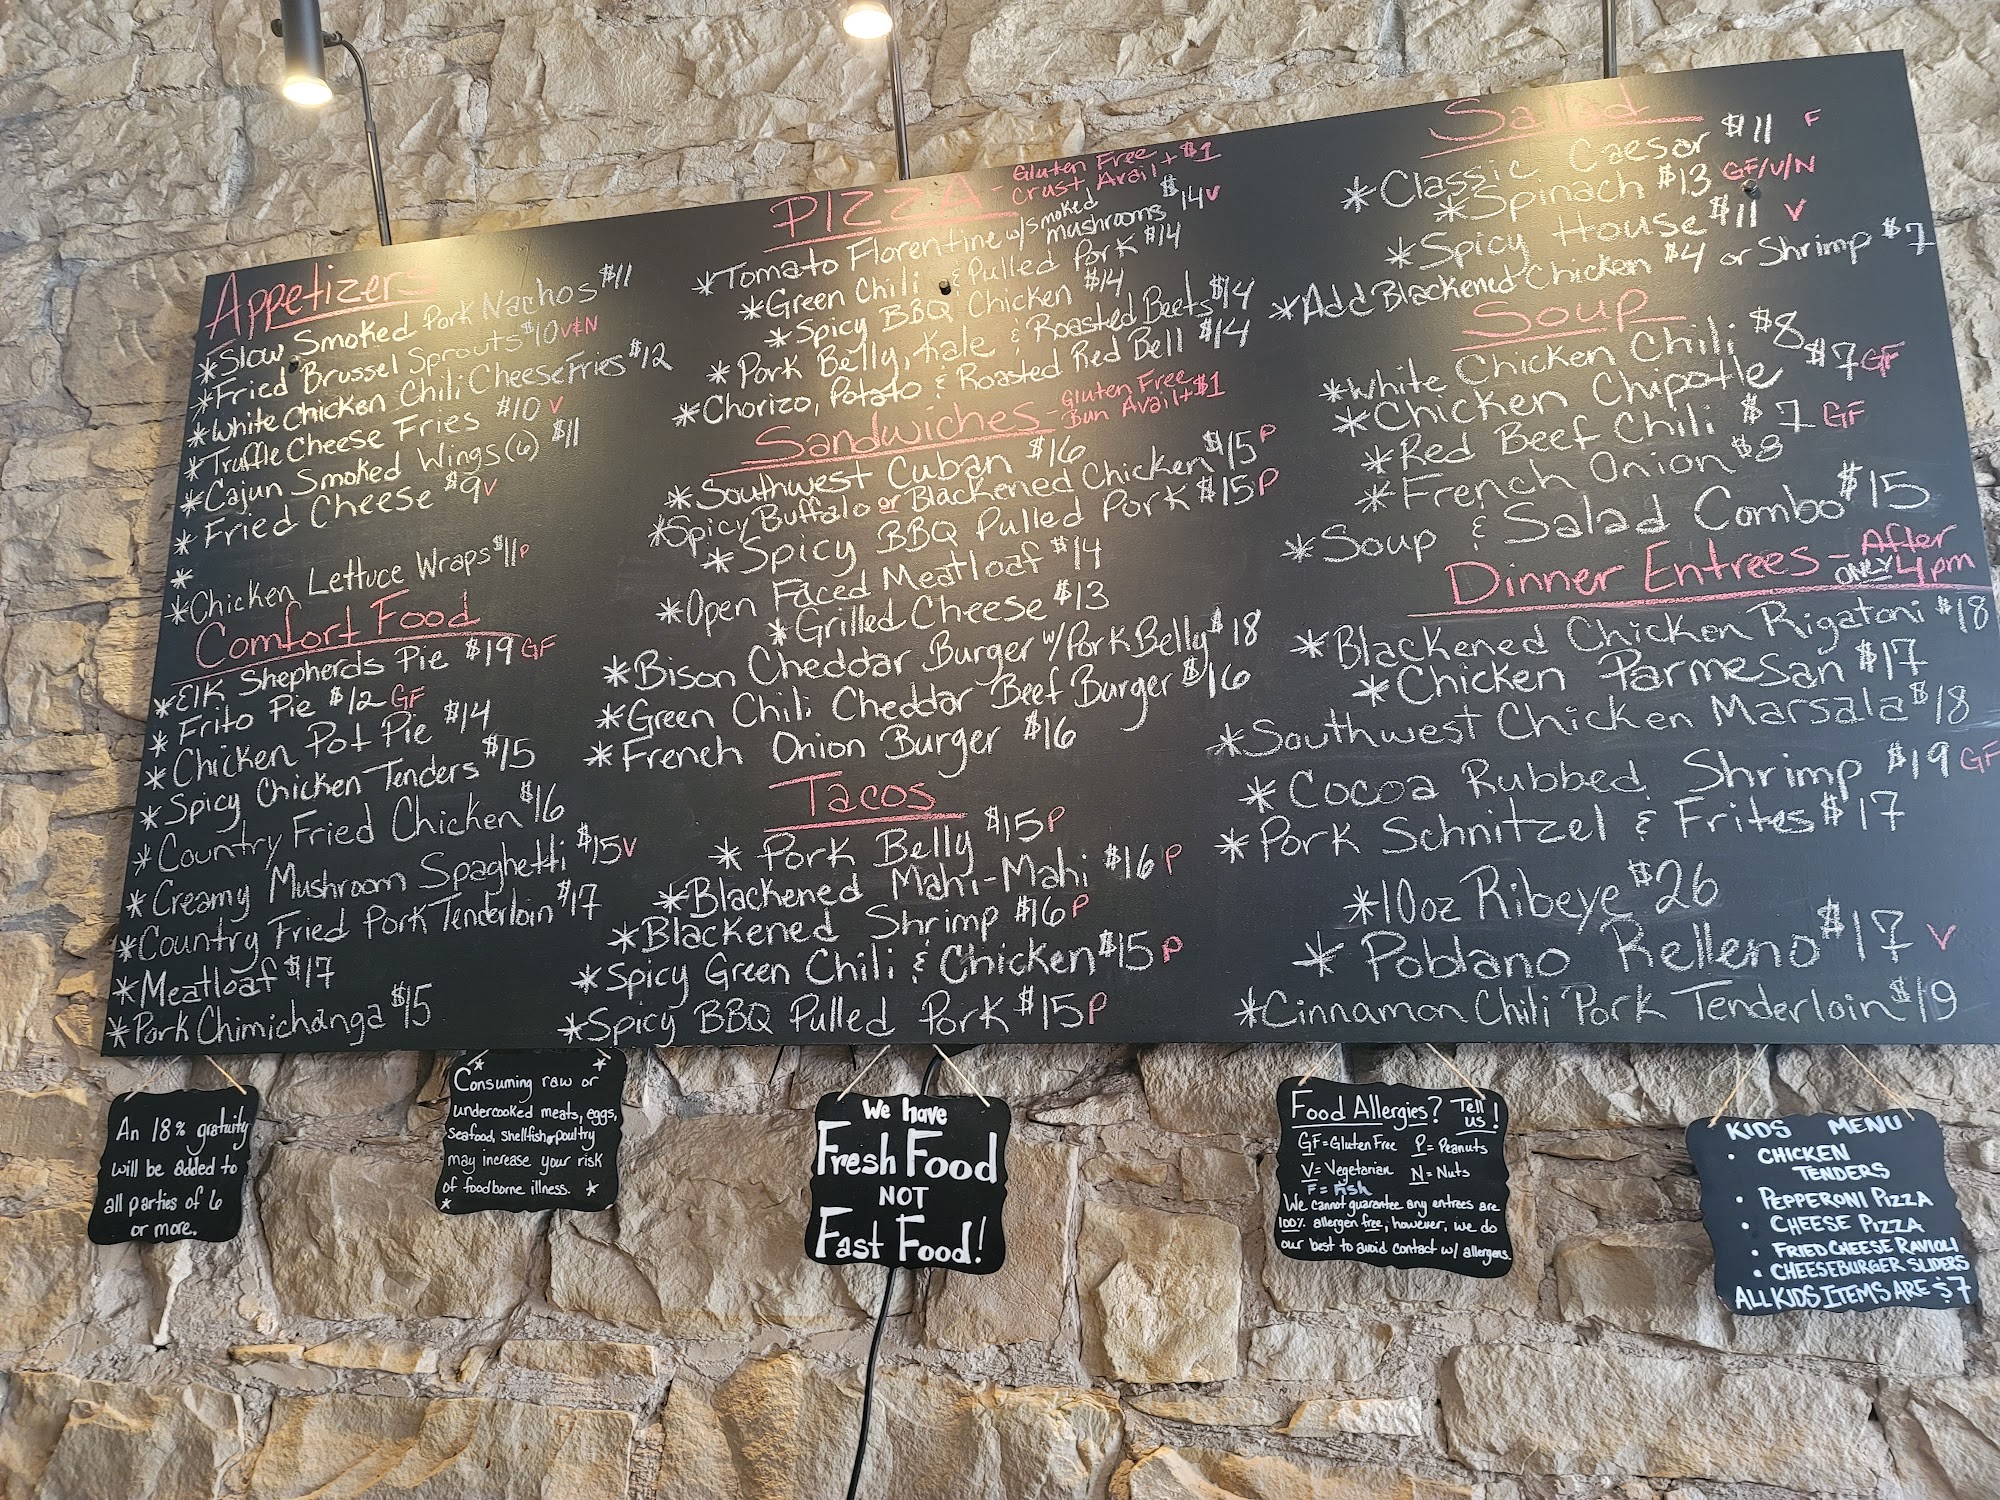 Appetizers
*Slow Smoked Pork Nachos $11
*Fried Brussel Sprouts $10 V&N
*White Chicken Chili Cheese Fries $12
*Truffle Cheese Fries $10 V
*Cajun Smoked Wings (6) $11
*Fried Cheese $9 V
*
*Chicken Lettuce Wraps $11 P
Comfort Food
*Elk Shepherds Pie $19 GF
*Frito Pie $12 GF
*Chicken Pot Pie $14
*Spicy Chicken Tenders $15
*Country Fried Chicken $16
*Creamy Mushroom Spaghetti $15 V
*Country Fried Pork Tenderloin $17
*Meatloaf $17
*Pork Chimichanga $15
PIZZA - Gluten Free
Crust Avail + $1
*Tomato Florentine w/smoked
mushrooms $14 V
*Green Chili & Pulled Pork $14
*Spicy BBQ Chicken $14
*Pork Belly, Kale & Roasted Beets $14
*Chorizo, Potato & Roasted Red Bell $14
Sandwiches - Gluten Free
Bun Avail + $1
*Southwest Cuban $16
*Spicy Buffalo or Blackened Chicken $15 P
*Spicy BBQ Pulled Pork $15 P
*Open Faced Meatloaf $14
*Grilled Cheese $13
*Bison Cheddar Burger w/Pork Belly $18
*Green Chili Cheddar Beef Burger $16
*French Onion Burger $16
Tacos
*Pork Belly $15 P
*Blackened Mahi-Mahi $16 P
*Blackened Shrimp $16 P
*Spicy Green Chili & Chicken $15 P
*Spicy BBQ Pulled Pork $15 P
Salad
*Classic Caesar $11 F
*Spinach $13 GF/V/N
*Spicy House $11 V
*Add Blackened Chicken $4 or Shrimp $7
Soup
*White Chicken Chili $8
*Chicken Chipotle $7 GF
*Red Beef Chili $7 GF
*French Onion $8
*Soup & Salad Combo $15
Dinner Entrees - After
ONLY 4pm
*Blackened Chicken Rigatoni $18
*Chicken Parmesan $17
*Southwest Chicken Marsala $18
*Cocoa Rubbed Shrimp $19 GF
*Pork Schnitzel & Frites $17
*10oz Ribeye $26
*Poblano Relleno $17 V
*Cinnamon Chili Pork Tenderloin $19
An 18% gratuity
will be added to
all parties of 6
or more.
Consuming raw or
undercooked meats, eggs,
seafood, shellfish or poultry
may increase your risk
of foodborne illness.
We have
Fresh Food
NOT
Fast Food!
Food Allergies? Tell
us!
GF=Gluten Free P=Peanuts
V=Vegetarian N=Nuts
F=Fish
We cannot guarantee any entrees are
100% allergen free, however, we do
our best to avoid contact w/ allergens.
KIDS MENU
• CHICKEN
TENDERS
• PEPPERONI PIZZA
• CHEESE PIZZA
• FRIED CHEESE RAVIOLI
• CHEESEBURGER SLIDERS
ALL KIDS ITEMS ARE $7